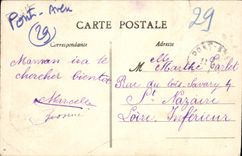 Pont-Aven
29
29
CARTE POSTALE
Correspondance
Adresse
Maman ira te
chercher bientôt
Marcelle
Yvonne
M Marthe
Rue du
St Nazaire
Loire Inférieure